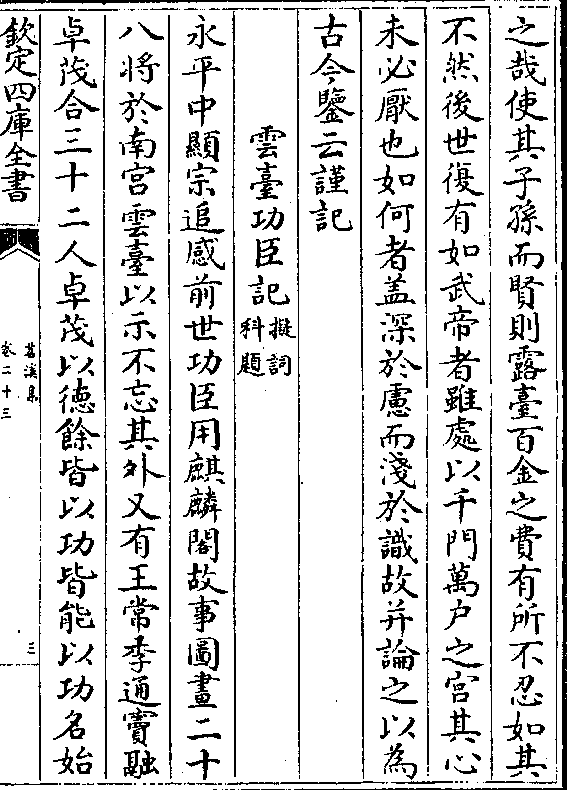 之哉使其子孫而賢則露臺百金之費有所不忍如其
不然後世復有如武帝者雖處以千門萬户之宫其心
未必厭也如何者盖深於慮而淺於識故并論之以為
古今鑒云謹記
雲臺功臣記擬詞科題
永平中顯宗追感前世功臣用麒麟閣故事圖畫二十
八将於南宫雲臺以示不忘其外又有王常李通竇融
卓茂合三十二人卓茂以德餘皆以功皆能以功名始
欽定四庫全書
苕溪集
卷二十三
三